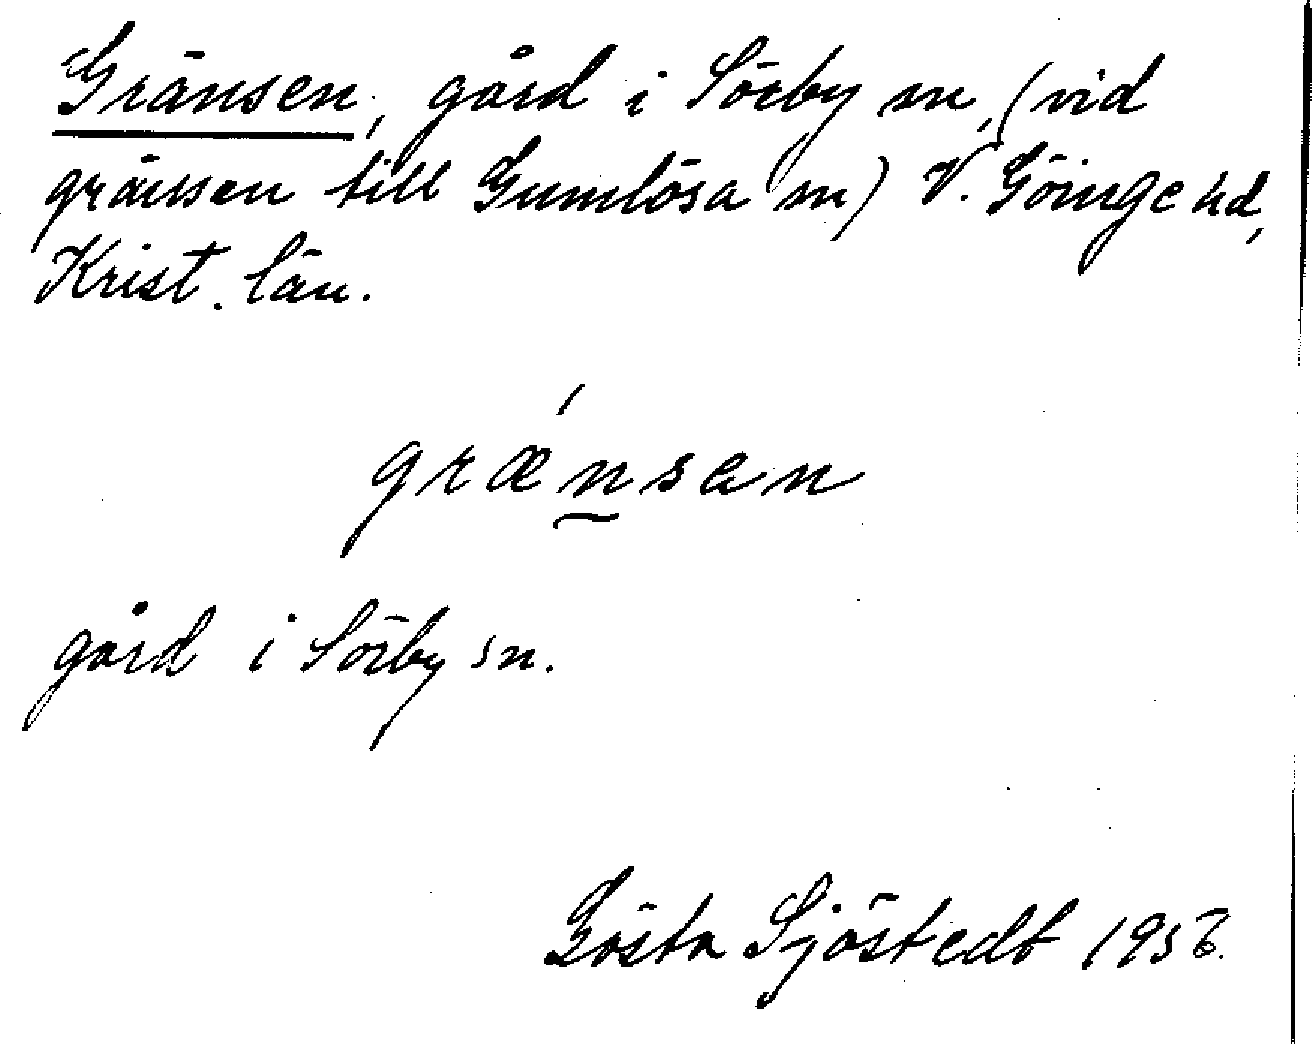 Gränsen, gård i Sörby sn, (vid
gränsen till Gumlösa sn) V. Göinge hd,
Krist. län.
græ´nsan
gård i Sörby sn.
Gösta Sjöstedt